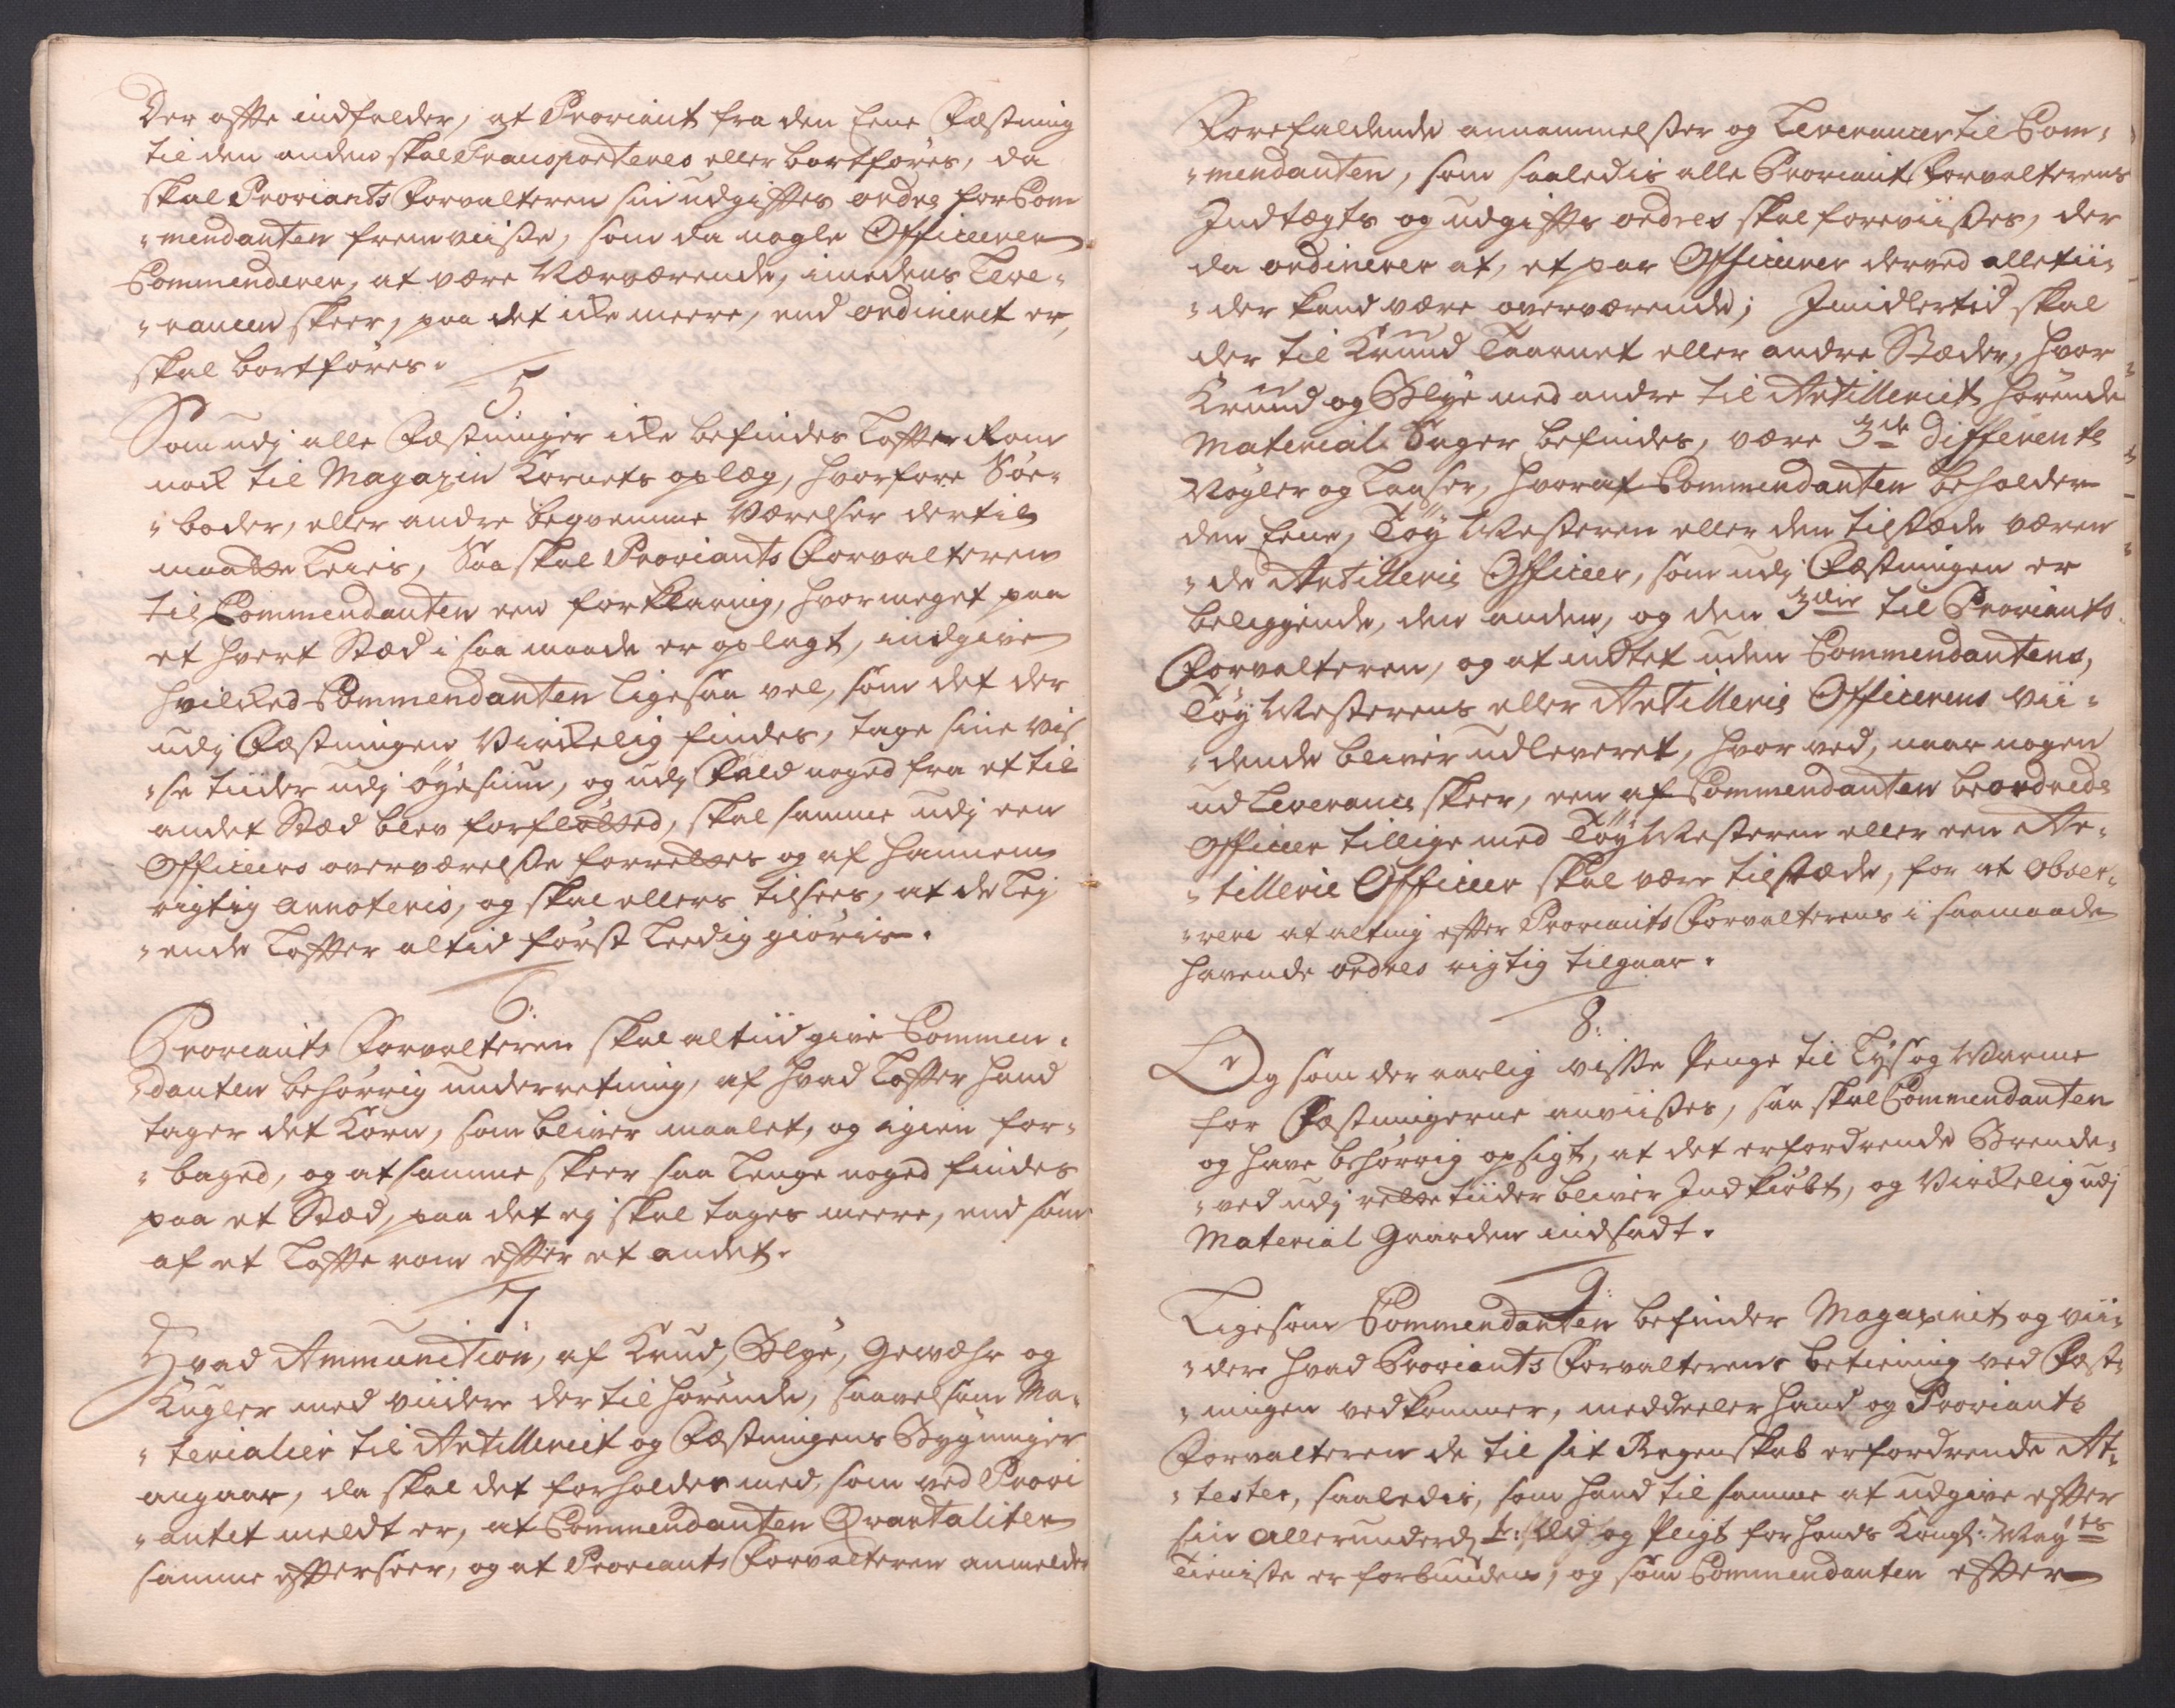 Der offte indfalder, at Proviant fra den Eene Fæstning
til den anden skal Transporteres eller bortføres, da
skal Proviants Forvalteren sin udgifftes ordre for Com
-mendanten fremviisse, som da nogle Officerer
Commenderer, at være Nærværende, imedens Leve-
-rancen skeer, paa det icke meere, end ordineret er,
skal bortføres.
5
Som udj alle Fæstninger icke befindes Loffter Rom
nock til Magazin Kornets oplæg, hvorfore Søe-
-boder, eller andre beqvemme Værelser dertil
maatte Leies, Saa skal Proviants Forvalteren
til Commendanten een forklaring, hvormeget paa
et hvert Stæd i saa maade er oplagt, indgive
hvilcked Commendanten ligesaa vel, som det der
udj Fæstningen Virckelig findes, tage sine vis
-se tiider udj øyesiun, og udj Fald noged fra et til
andet Stæd blev forfløtted, skal samme udj een
Officeers overværelsse forrettes og af hannem
rigtig annoteris, og skal ellers tilsees, at de Lej
-ende Loffter altid først Leedig giøris.
6:
Proviants Forvalteren skal altiid give Commen-
-danten behørrig underretning, af hvad Loffter hand
tager det Korn, som bliver maalet, og igien for-
-baged, og at samme skeer saa lenge noged findes
paa et Stæd, paa det ej skal tages meere, end som
af et Loffte rom effter et andet.
7:
Hvad Ammunition, af Krud, Blye, Gewæhr og
Kugler med viidere der til hørende, saavelsom Ma-
-terialier til Artilleriet og Fæstningens Bygninger
angaar, da skal det forholdes med, som ved Provi
-antet meldt er, at Commendanten Qvartaliter
samme effterseer, og at Proviants Forvalteren anmelder
Forefaldende annammelsser og Leverancer til Com-
-mendanten, som saaledis alle Proviant Forvalterens
Indtægts og udgiffts ordres skal foreviisses, der
da ordinerer at, et par Officerer derved alletii-
-der kand være overværende; Imidlertid skal
der til Kruud Taarnet eller andre Stæder, hvor
Kruud og Blye med andre til Artilleriet hørende
Material Sager befindes, være 3de differente
Nøgler og Laaser, hvoraf Commendanten beholder
den Eene, Tøy Mesteren eller den tilstæde væren
-de Artillerie Officeer, som udj Fæstningen er
beliggende, den anden, og den 3die til Proviants
Forvalteren, og at intet uden Commendantens,
Tøy Mesterens eller Artillerie Officerens vii-
-dende bliver udleveret, hvor ved, naar nogen
ud Leverance skeer, een af Commendanten beordrede
Officeer tillige med Tøy Mesteren eller een Ar-
-tillerie Officeer skal være tilstæde, for at obser-
-vere at alting effter Proviants Forvalterens i saamaade
havende ordres rigtig tilgaar.
8:
Og som der aarlig visse Penge til Lys og Varme
for Fæstningerne anviisses, saa skal Commendanten
og have behørrig opsigt, at det erfordrende Brende-
-ved udj rette tiider bliver Indkiøbt, og Virckelig udj
Material Gaarden indsadt.
9:
Ligesom Commendanten befinder Magazinet og vii-
-dere hvad Proviants Forvalterens betiening ved Fæst-
-ningen vedkommer, meddeeler hand og Proviants
Forvalteren de til sit Regenskab erfordrende At-
-tester, saaledis, som hand til samme at udgive effter
sin allerunderd: Eed og Pligt for hands Kongl: Mayts
Tieniste er forbunden, og som Commendanten effter